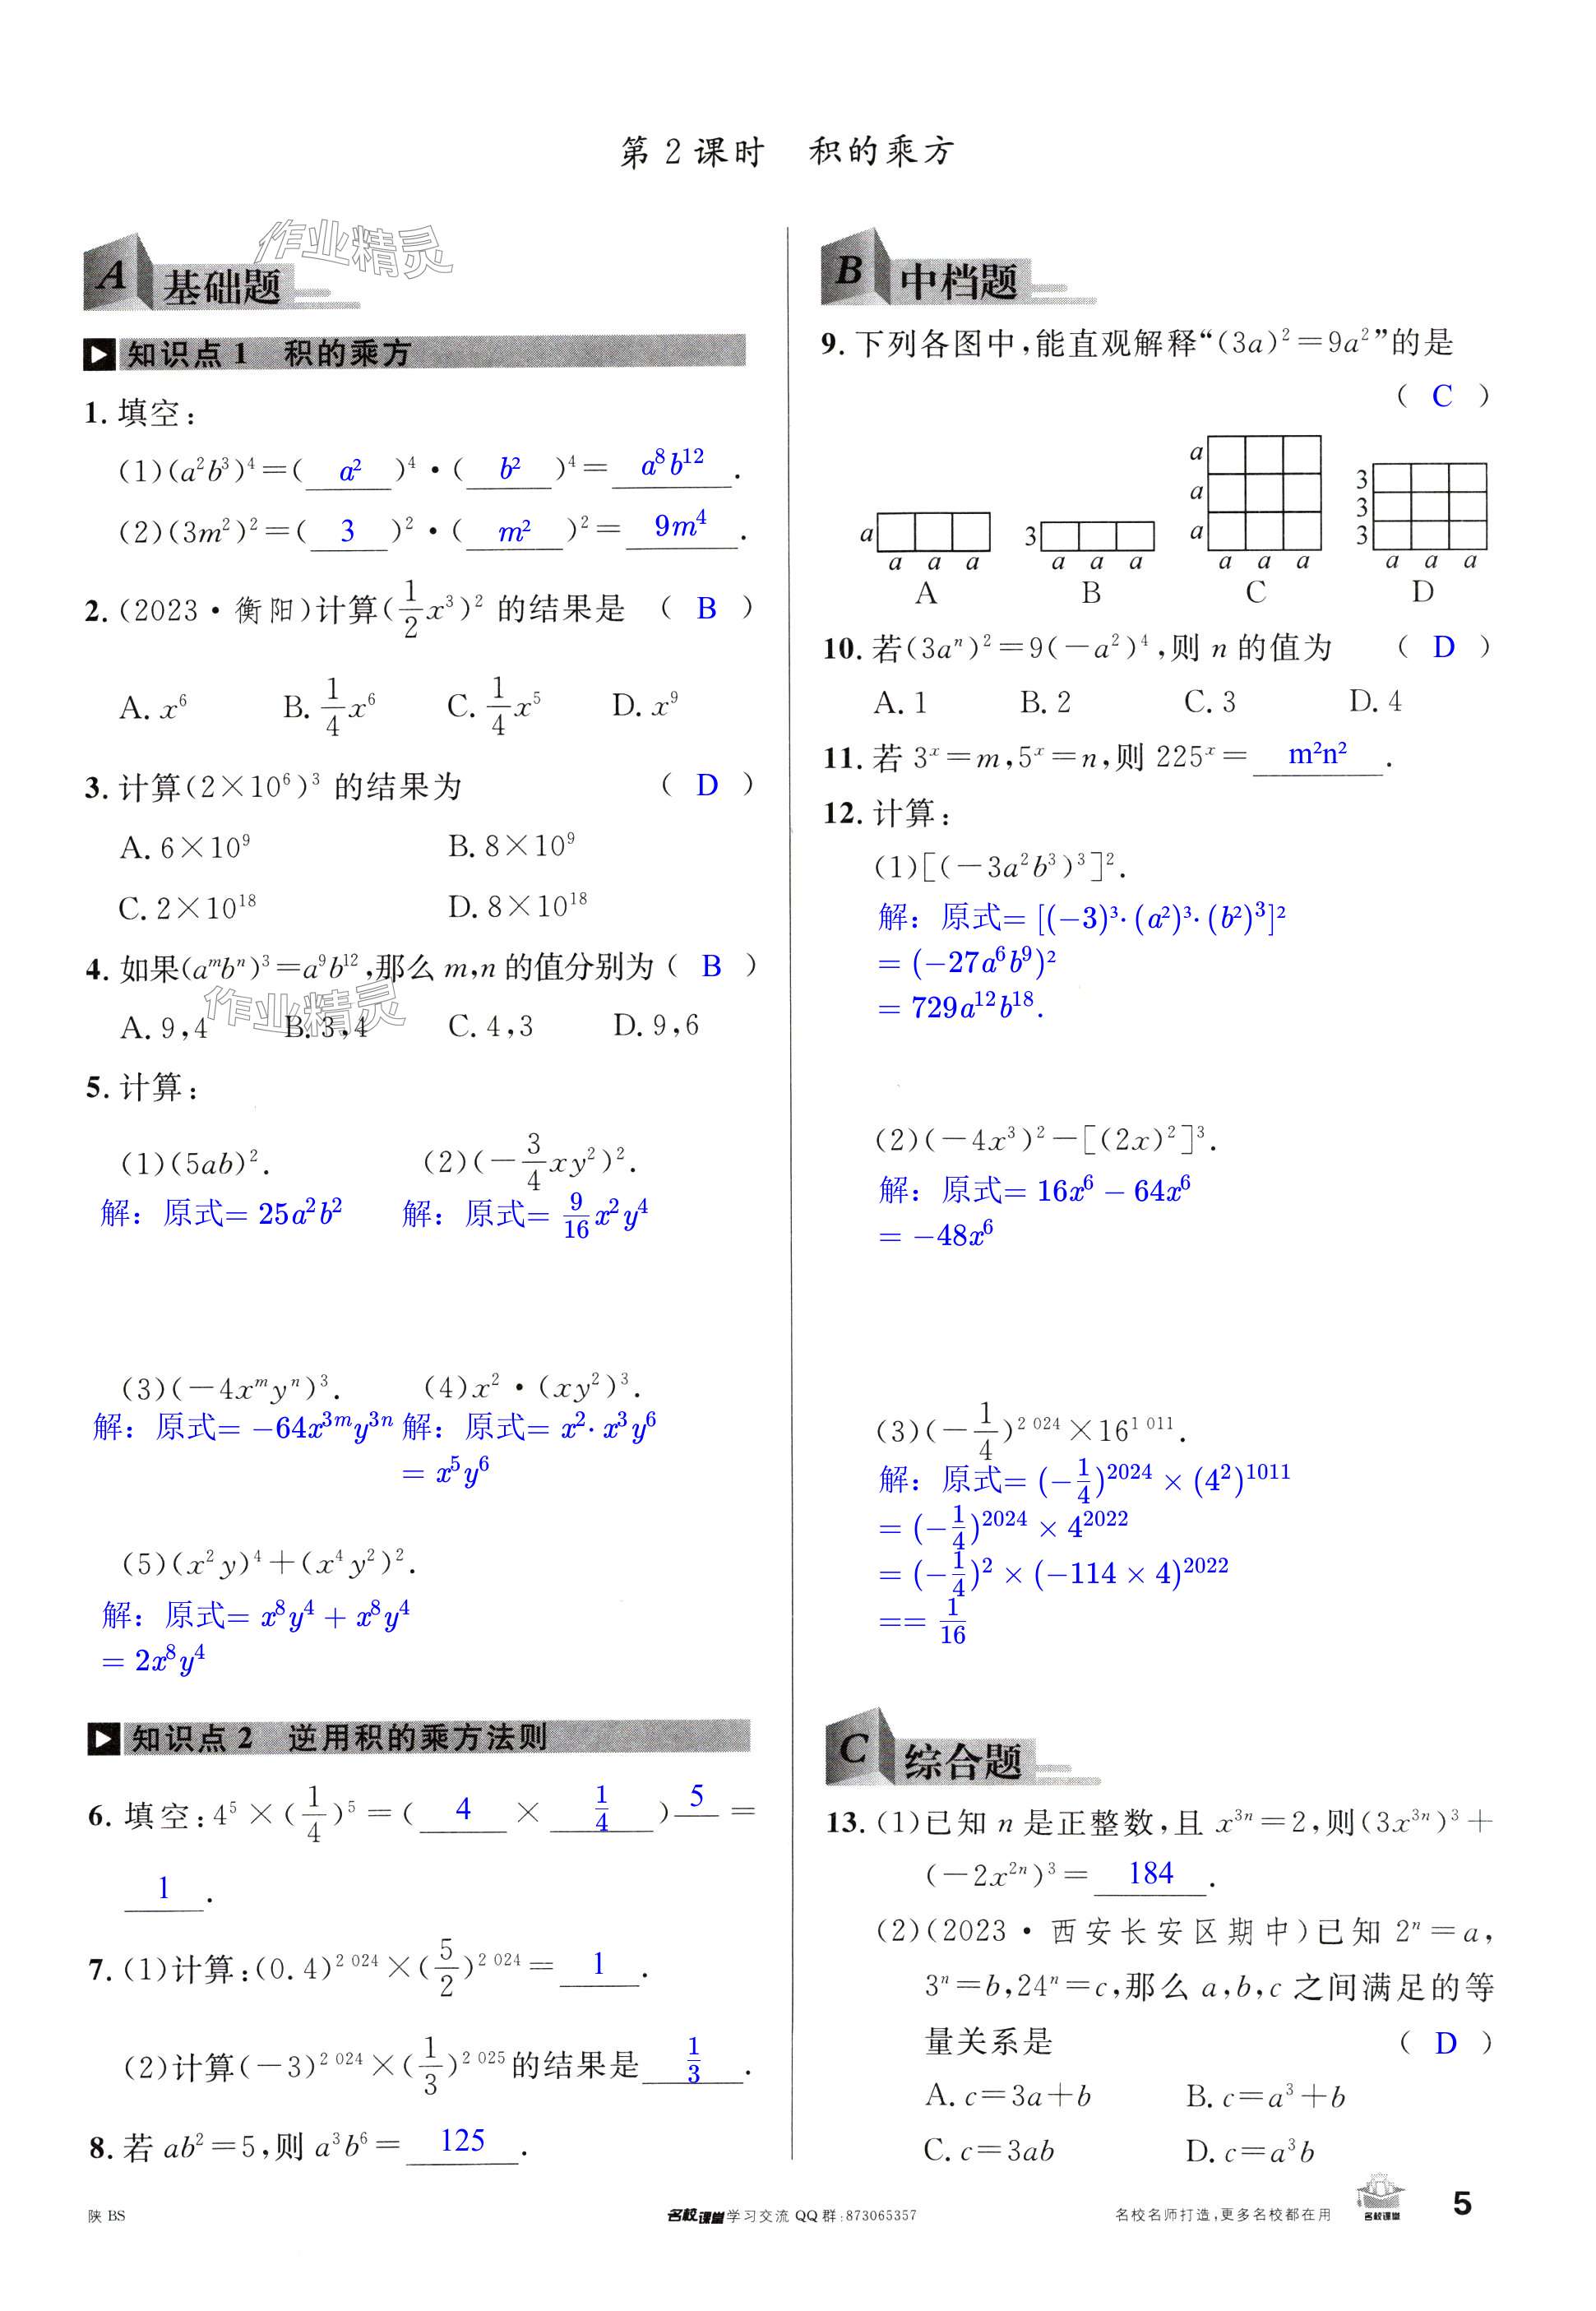 第 2 课时　积的乘方
作业精灵
A 基础题
知识点 1　积的乘方
1. 填空：
(1)(a²b³)⁴=( a² )⁴·( b² )⁴= a⁸b¹² .
(2)(3m²)²=( 3 )²·( m² )²= 9m⁴ .
2. (2023·衡阳)计算(1/2 x³)² 的结果是 ( B )
A. x⁶　B. 1/4 x⁶　C. 1/4 x⁵　D. x⁹
3. 计算(2×10⁶)³ 的结果为 ( D )
A. 6×10⁹　B. 8×10⁹
C. 2×10¹⁸　D. 8×10¹⁸
4. 如果(aᵐbⁿ)³=a⁹b¹²,那么 m,n 的值分别为 ( B )
作业精灵
A. 9,4　B. 3,4　C. 4,3　D. 9,6
5. 计算：
(1)(5ab)².　(2)(-3/4 xy²)².
解：原式= 25a²b²　解：原式= 9/16 x²y⁴
(3)(-4xᵐyⁿ)³.　(4)x²·(xy²)³.
解：原式= -64x³ᵐy³ⁿ　解：原式= x²·x³y⁶
= x⁵y⁶
(5)(x²y)⁴+(x⁴y²)².
解：原式= x⁸y⁴ + x⁸y⁴
= 2x⁸y⁴
知识点 2　逆用积的乘方法则
6. 填空:4⁵×(1/4)⁵=( 4 × 1/4 ) 5 =
1 .
7. (1)计算:(0.4)² ⁰²⁴×(5/2)² ⁰²⁴= 1 .
(2)计算(-3)² ⁰²⁴×(1/3)² ⁰²⁵的结果是 1/3 .
8. 若 ab²=5,则 a³b⁶= 125 .
B 中档题
9. 下列各图中,能直观解释“(3a)²=9a²”的是
( C )
a a a a　3 a a a　a a a a a a　3 3 3 a a a
A　B　C　D
10. 若(3aⁿ)²=9(-a²)⁴,则 n 的值为 ( D )
A. 1　B. 2　C. 3　D. 4
11. 若 3ˣ=m,5ˣ=n,则 225ˣ= m²n² .
12. 计算：
(1)[(-3a²b³)³]².
解：原式= [(-3)³·(a²)³·(b²)³]²
= (-27a⁶b⁹)²
= 729a¹²b¹⁸.
(2)(-4x³)²-[(2x)²]³.
解：原式= 16x⁶ - 64x⁶
= -48x⁶
(3)(-1/4)² ⁰²⁴×16¹ ⁰¹¹.
解：原式= (-1/4)²⁰²⁴ × (4²)¹⁰¹¹
= (-1/4)²⁰²⁴ × 4²⁰²²
= (-1/4)² × (-114 × 4)²⁰²²
== 1/16
C 综合题
13. (1)已知 n 是正整数,且 x³ⁿ=2,则(3x³ⁿ)³+
(-2x²ⁿ)³= 184 .
(2)(2023·西安长安区期中)已知 2ⁿ=a,
3ⁿ=b,24ⁿ=c,那么 a,b,c 之间满足的等
量关系是 ( D )
A. c=3a+b　B. c=a³+b
C. c=3ab　D. c=a³b
陕 BS　名校课堂学习交流 QQ 群:873065357　名校名师打造,更多名校都在用　名校课堂　5